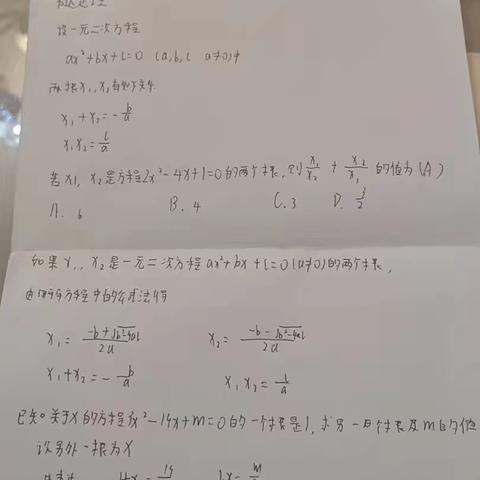 韦达定理
设一元二次方程
ax²+bx+c=0 (a,b,c a≠0)中
两根x₁,x₂有如下关系
x₁+x₂=-b/a
x₁x₂=c/a
若x₁, x₂是方程2x²-4x+1=0的两个根,则x₁/x₂ + x₂/x₁的值为(A)
A. 6 B. 4 C. 3 D. 3/2
如果x₁, x₂是一元二次方程ax²+bx+c=0(a≠0)的两个根,
由解方程中的公式法得
x₁=(-b+√b²-4ac)/2a x₂=(-b-√b²-4ac)/2a
x₁+x₂=-b/a x₁x₂=c/a
已知关于x的方程3x²-19x+m=0的一个根是1,求另一个根及m的值
设另外一根为x
1+x=19/ 1x=m/